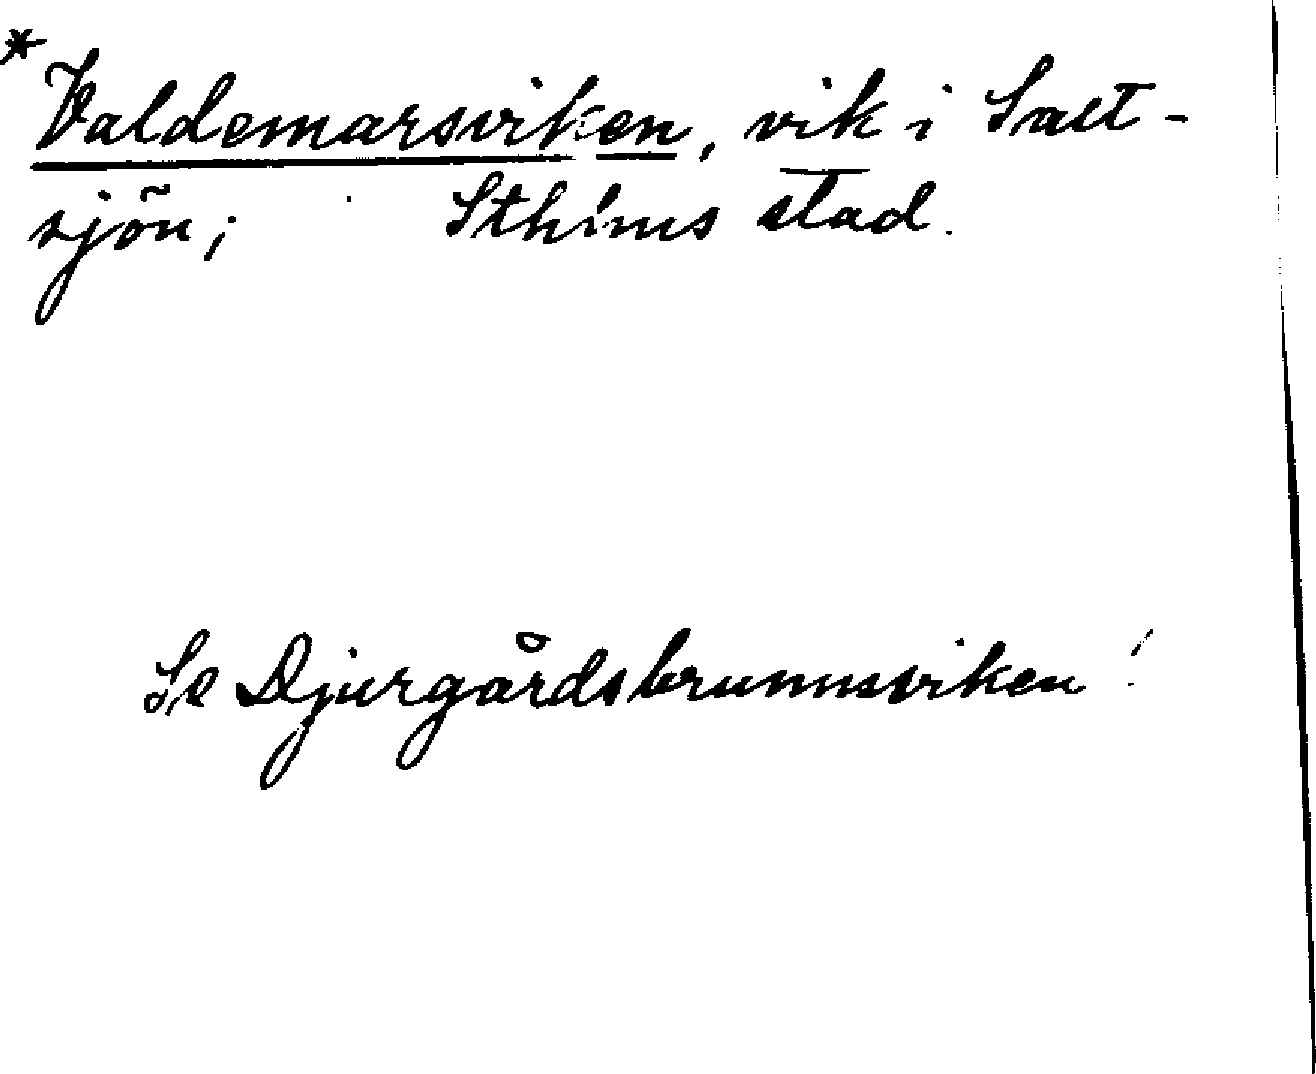 * Valdemarsviken, vik i Salt-
sjön; Sthlms stad.
Se Djurgårdsbrunnsviken!